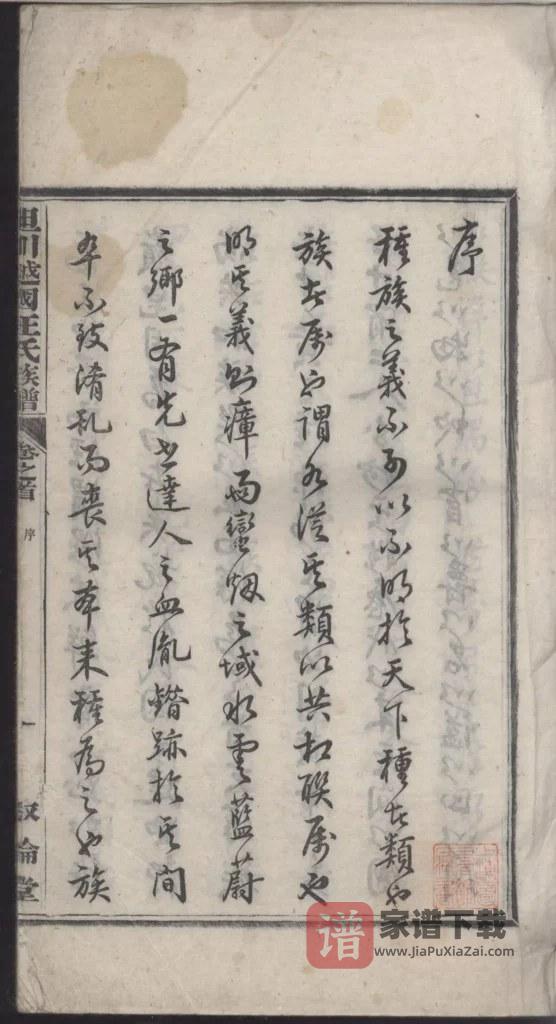 序
種族之義不可以不明於天下種者類也
族者屬也謂各從其類以共相聯屬也
明其義則瘴雨蠻烟之域水雲藍蔚
之鄉一有先世達人之血胤錯跡於其間
卒不致淆亂而喪其本来種為之也族
坦川越國汪氏族譜
卷之首
序
一
敘倫堂
谱
家谱下载
www.JiaPuXiaZai.com